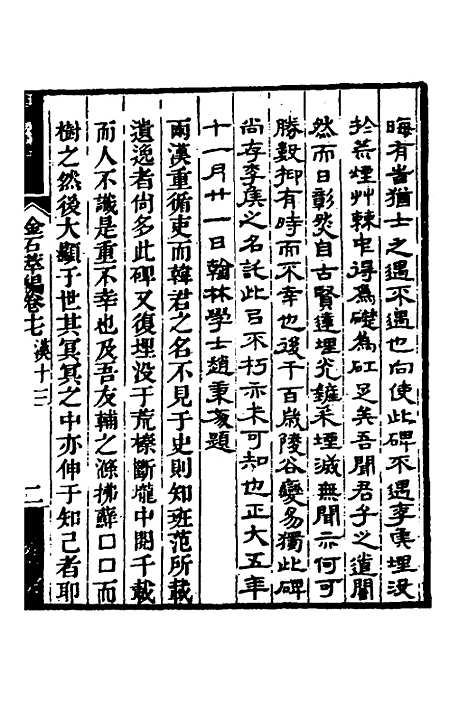 晦有睹猶士之遇不遇也向使此碑不遇李矦埋没
於荒煙艸棘中得爲礎爲矼足矣吾聞君子之道闇
然而日彰然自古賢達埋光鏟采堙滅無聞亦何可
勝數抑有時而不幸也後千百歲陵谷變易獨此碑
尚存李矦之名託此㠯不朽亦未可知也正大五年
十一月廿一日翰林學士趙秉文題
兩漢重循吏而韓君之名不見于史則知班范所載
遺逸者尙多此碑又復埋没于荒榛斷壠中閱千載
而人不識是重不幸也及吾友輔之滌拂蘚口口而
樹之然後大顯于世其冥冥之中亦伸于知己者耶
金石萃編卷十七 漢十三
二